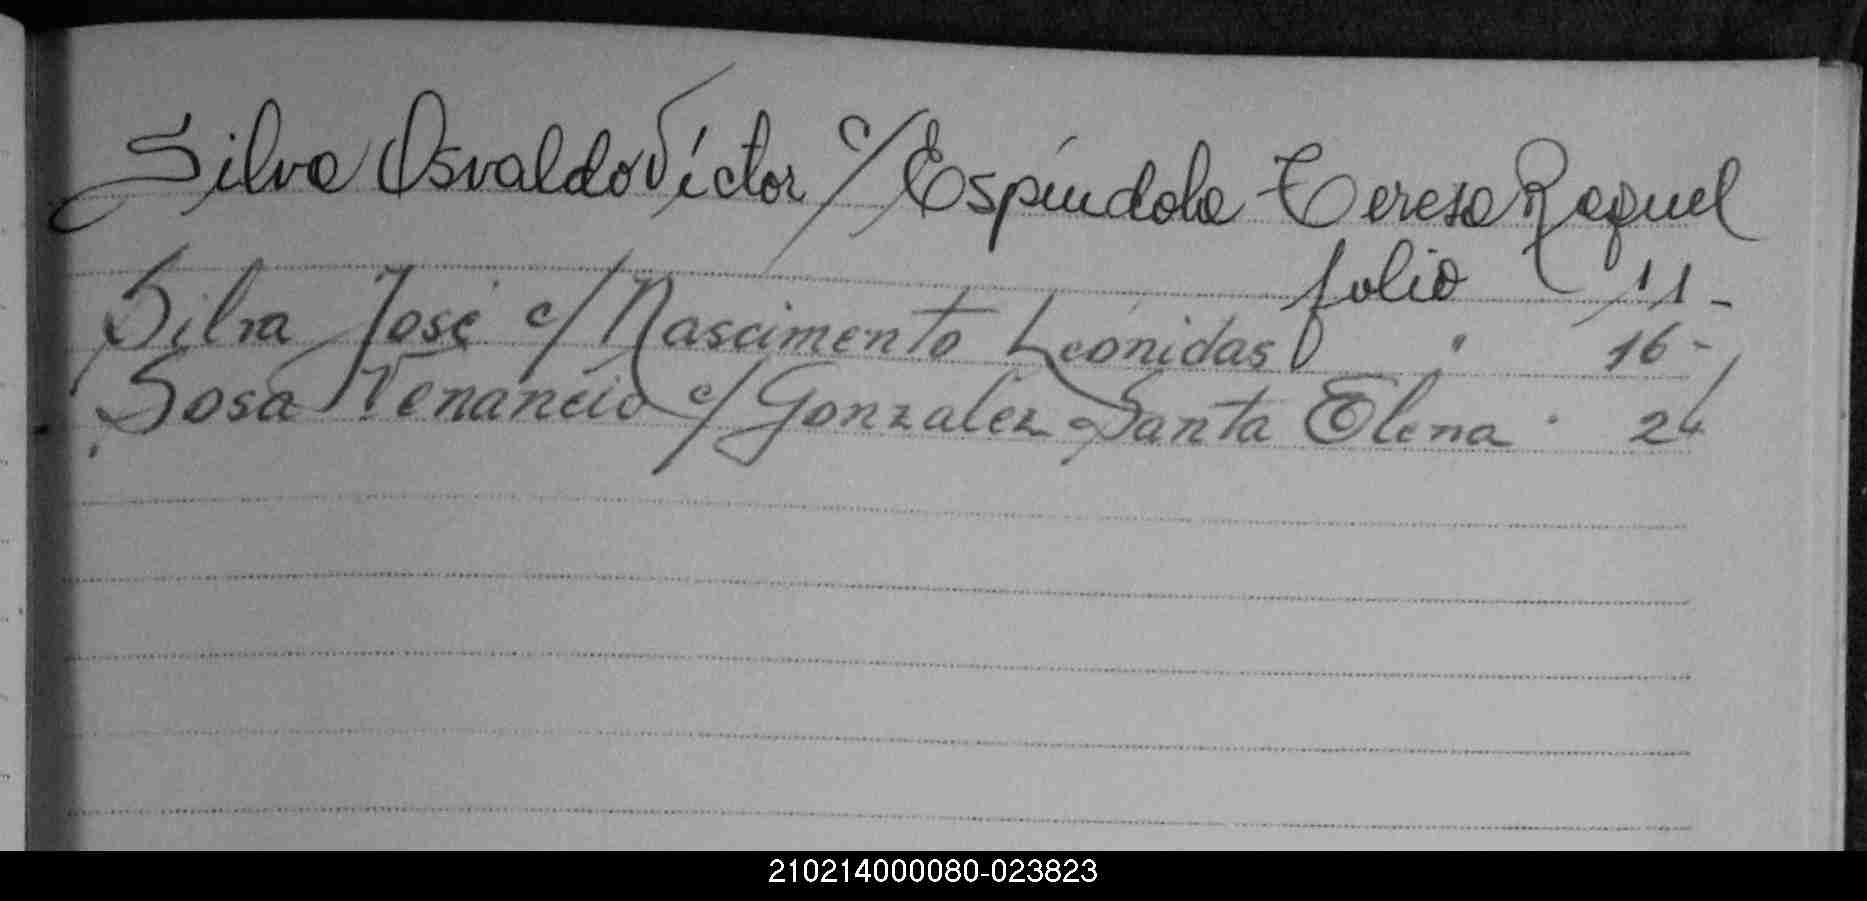 Silva Osvaldo Víctor c/ Espíndola Teresa Raquel
folio 11-
Silva José c/ Nascimento Leónidas " 16-
Sosa Venancio c/ Gonzalez Santa Elena " 24
210214000080-023823